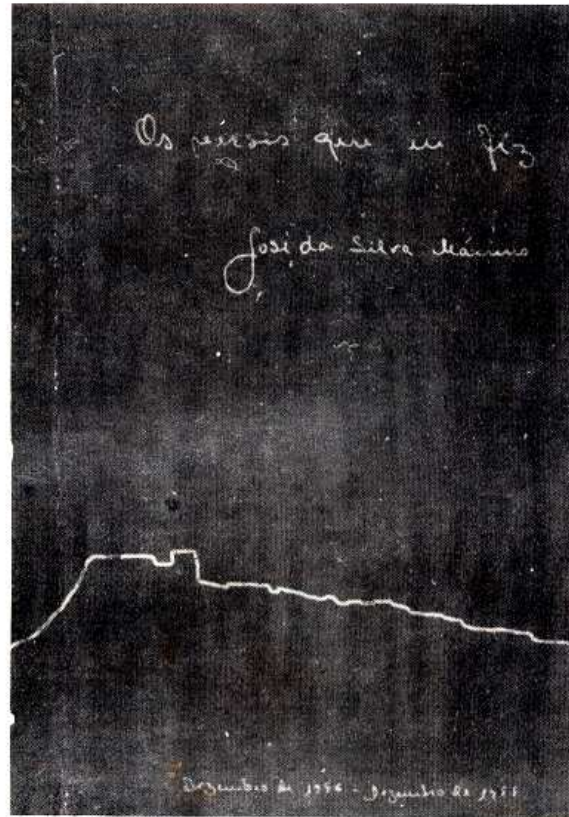 Os versos que eu fiz
José da Silva Máximo
Dezembro de 1986 - Dezembro de 1988